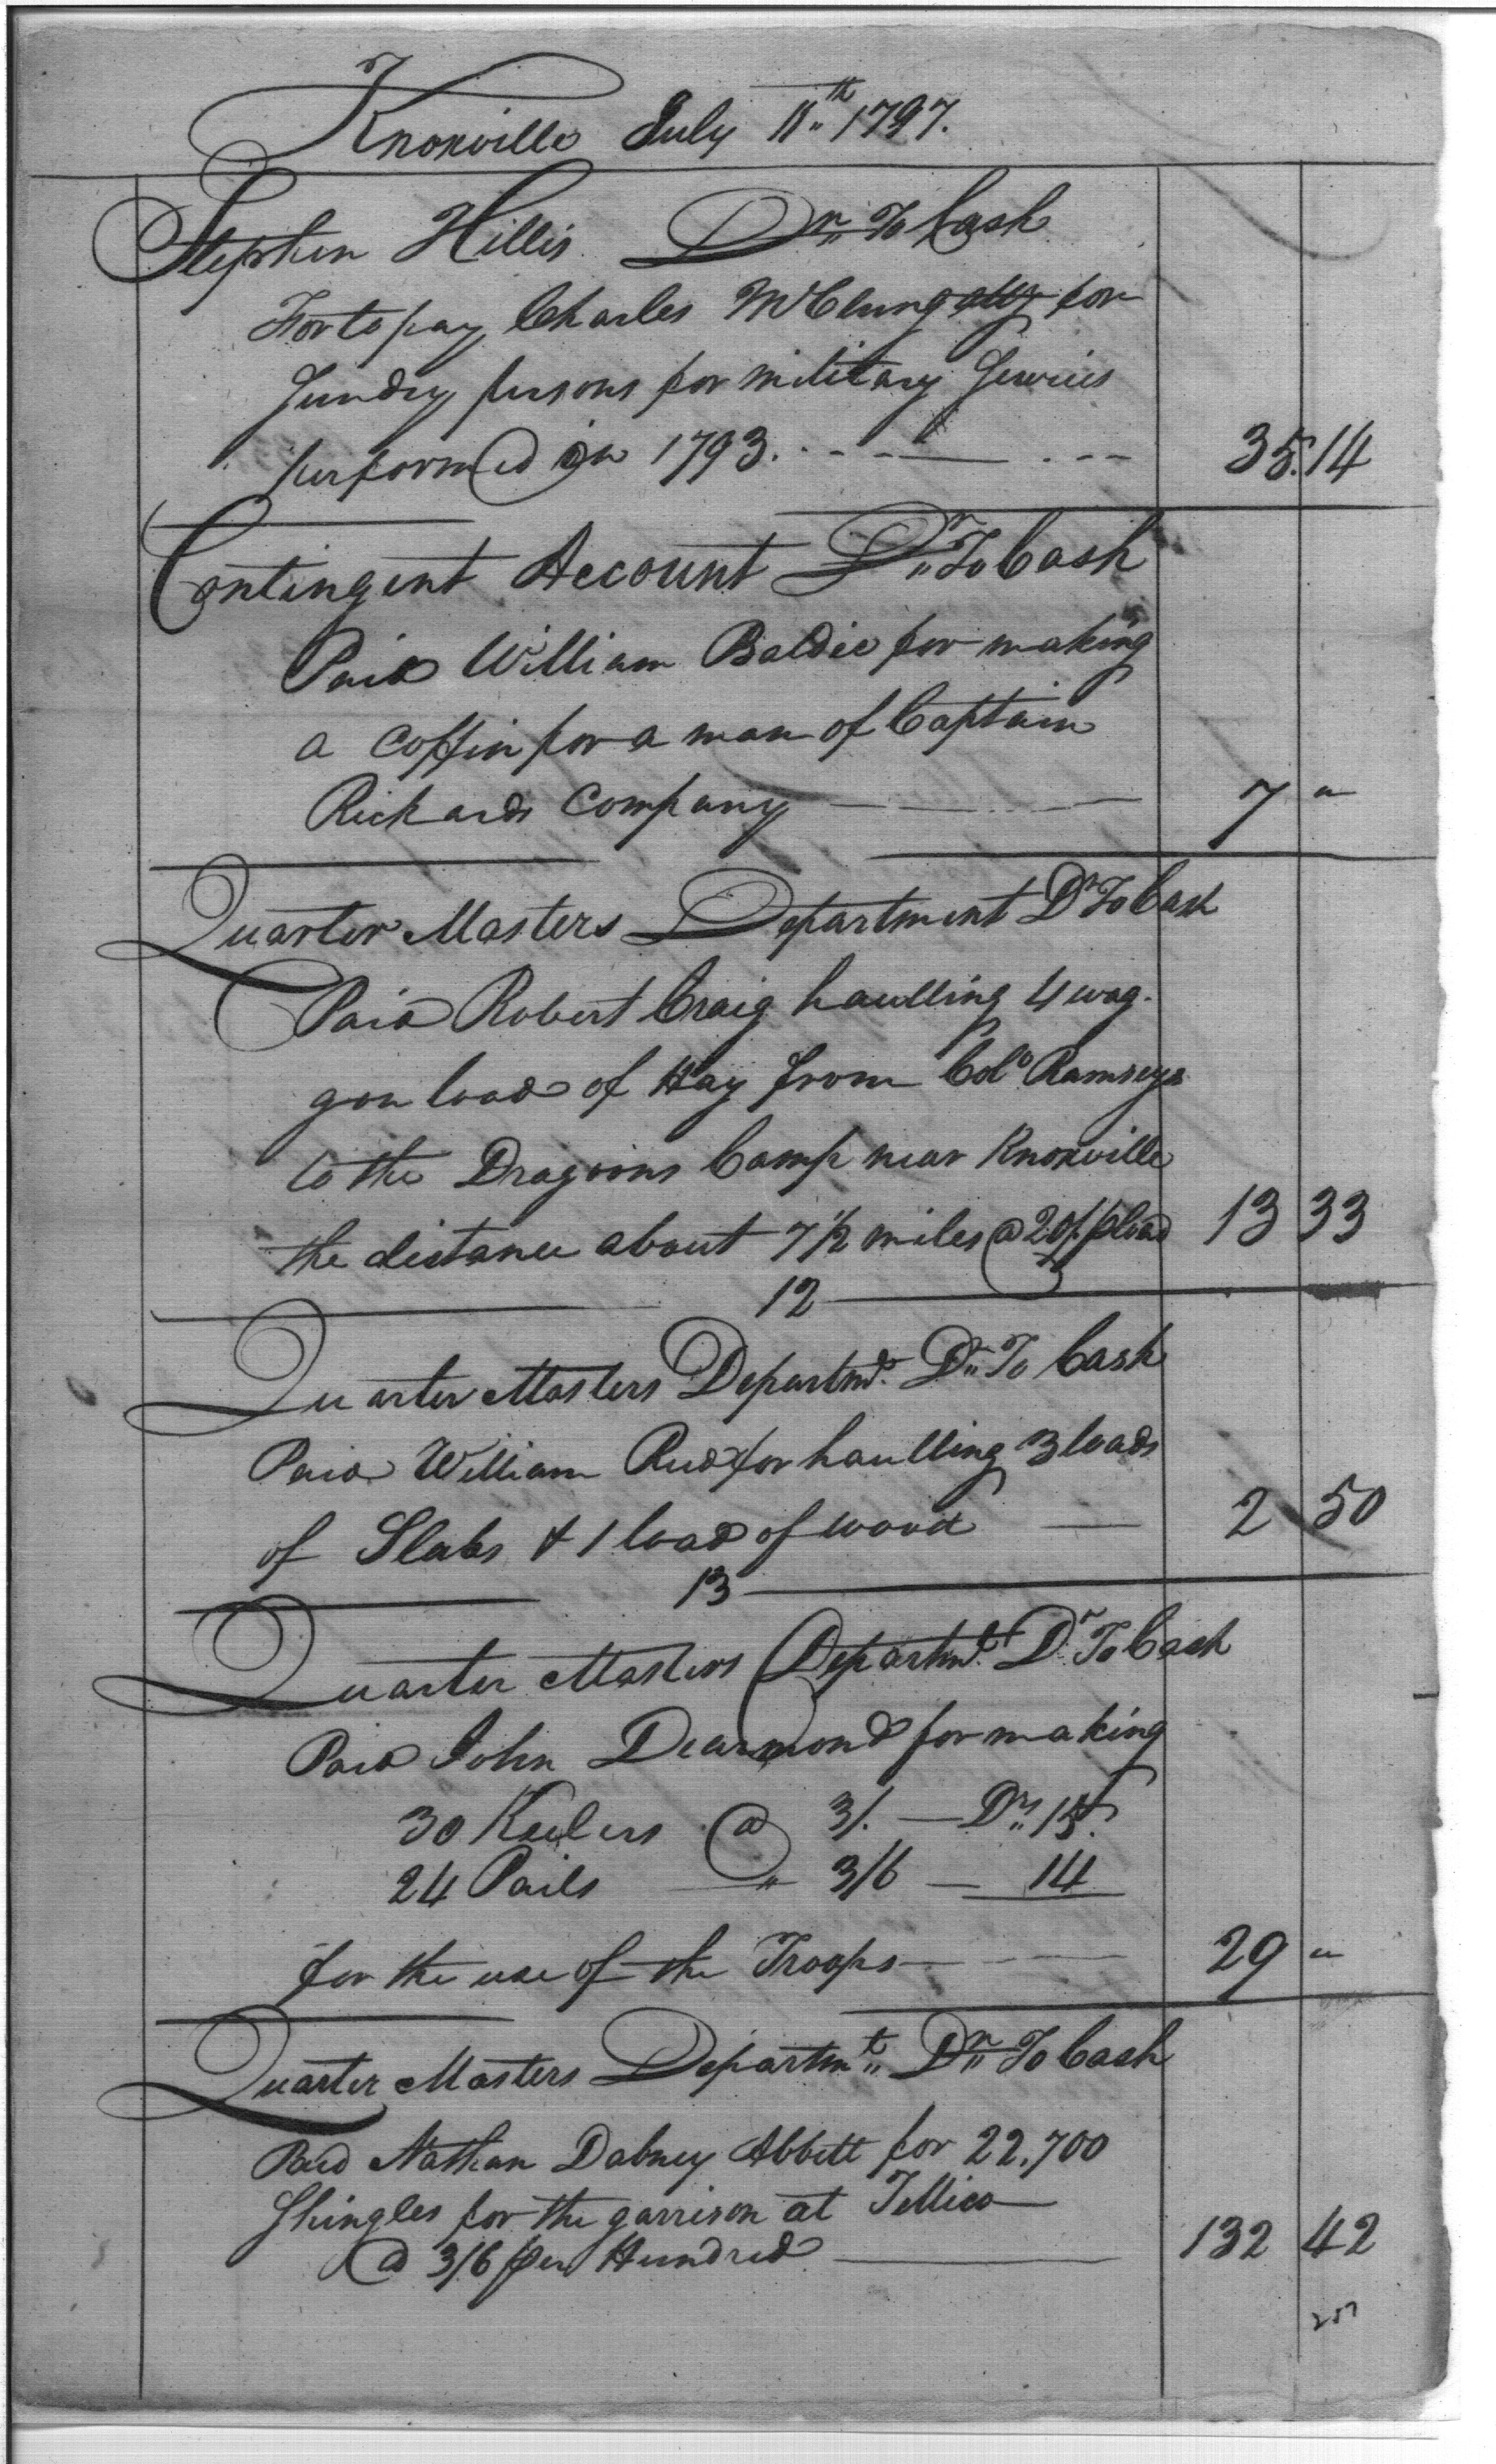 Knoxville July 11th 1797.
Stephen Hillis Dr To Cash
For to pay Charles McClung atty for
Sundry persons for military Services
performed in 1793. 35.14
Contingent Account Dr To Cash
Paid William Baldie for making
a coffin for a man of Captain
Rickards Company 7 "
Quarter Masters Department Dr To Cash
Paid Robert Craig haulling 4 wag-
gon load of Hay from Colo Ramseys
to the Dragoons Camp near Knoxville
the distance about 7 1/2 miles @ 20/. p load 13 33
12
Quarter Masters Departmt. Dr To Cash
Paid William Reed for haulling 3 loads
of Slabs & 1 load of wood 2 50
13
Quarter Masters Departmt. Dr To Cash
Paid John Dearmond for making
30 Keelers @ 3/. — Drs 15.
24 Pails " 3/6 — 14
for the use of the Troops 29 "
Quarter Masters Departmt Dr To Cash
Paid Nathan Dabney Abbett for 22,700
Shingles for the garrison at Tellico
@ 3/6 per Hundred 132 42